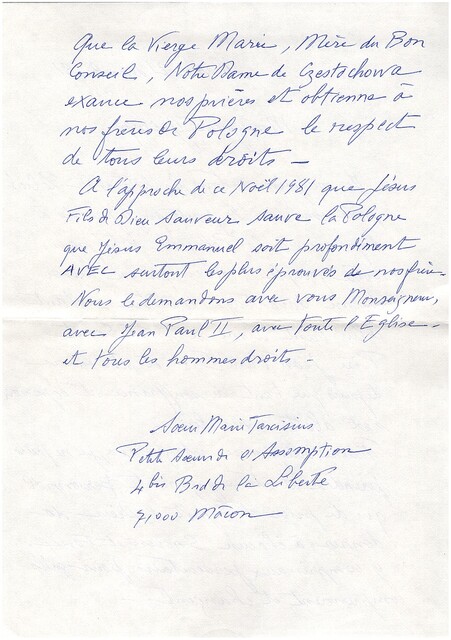 Que la Vierge Marie, Mère du Bon
Conseil, Notre Dame de Czestochowa
exauce nos prières et obtienne à
nos frères de Pologne le respect
de tous leurs droits —
A l'approche de ce Noël 1981 que Jésus
Fils de Dieu Sauveur sauve la Pologne
que Jésus Emmanuel soit profondément
AVEC surtout les plus éprouvés de nos frères.
Nous le demandons avec vous Monseigneur,
avec Jean Paul II, avec toute l'Église -
et tous les hommes droits -
Sœur Marie Tarcisius
Petite Sœur de l'Assomption
4 bis Bd de la Liberté
71000 Mâcon